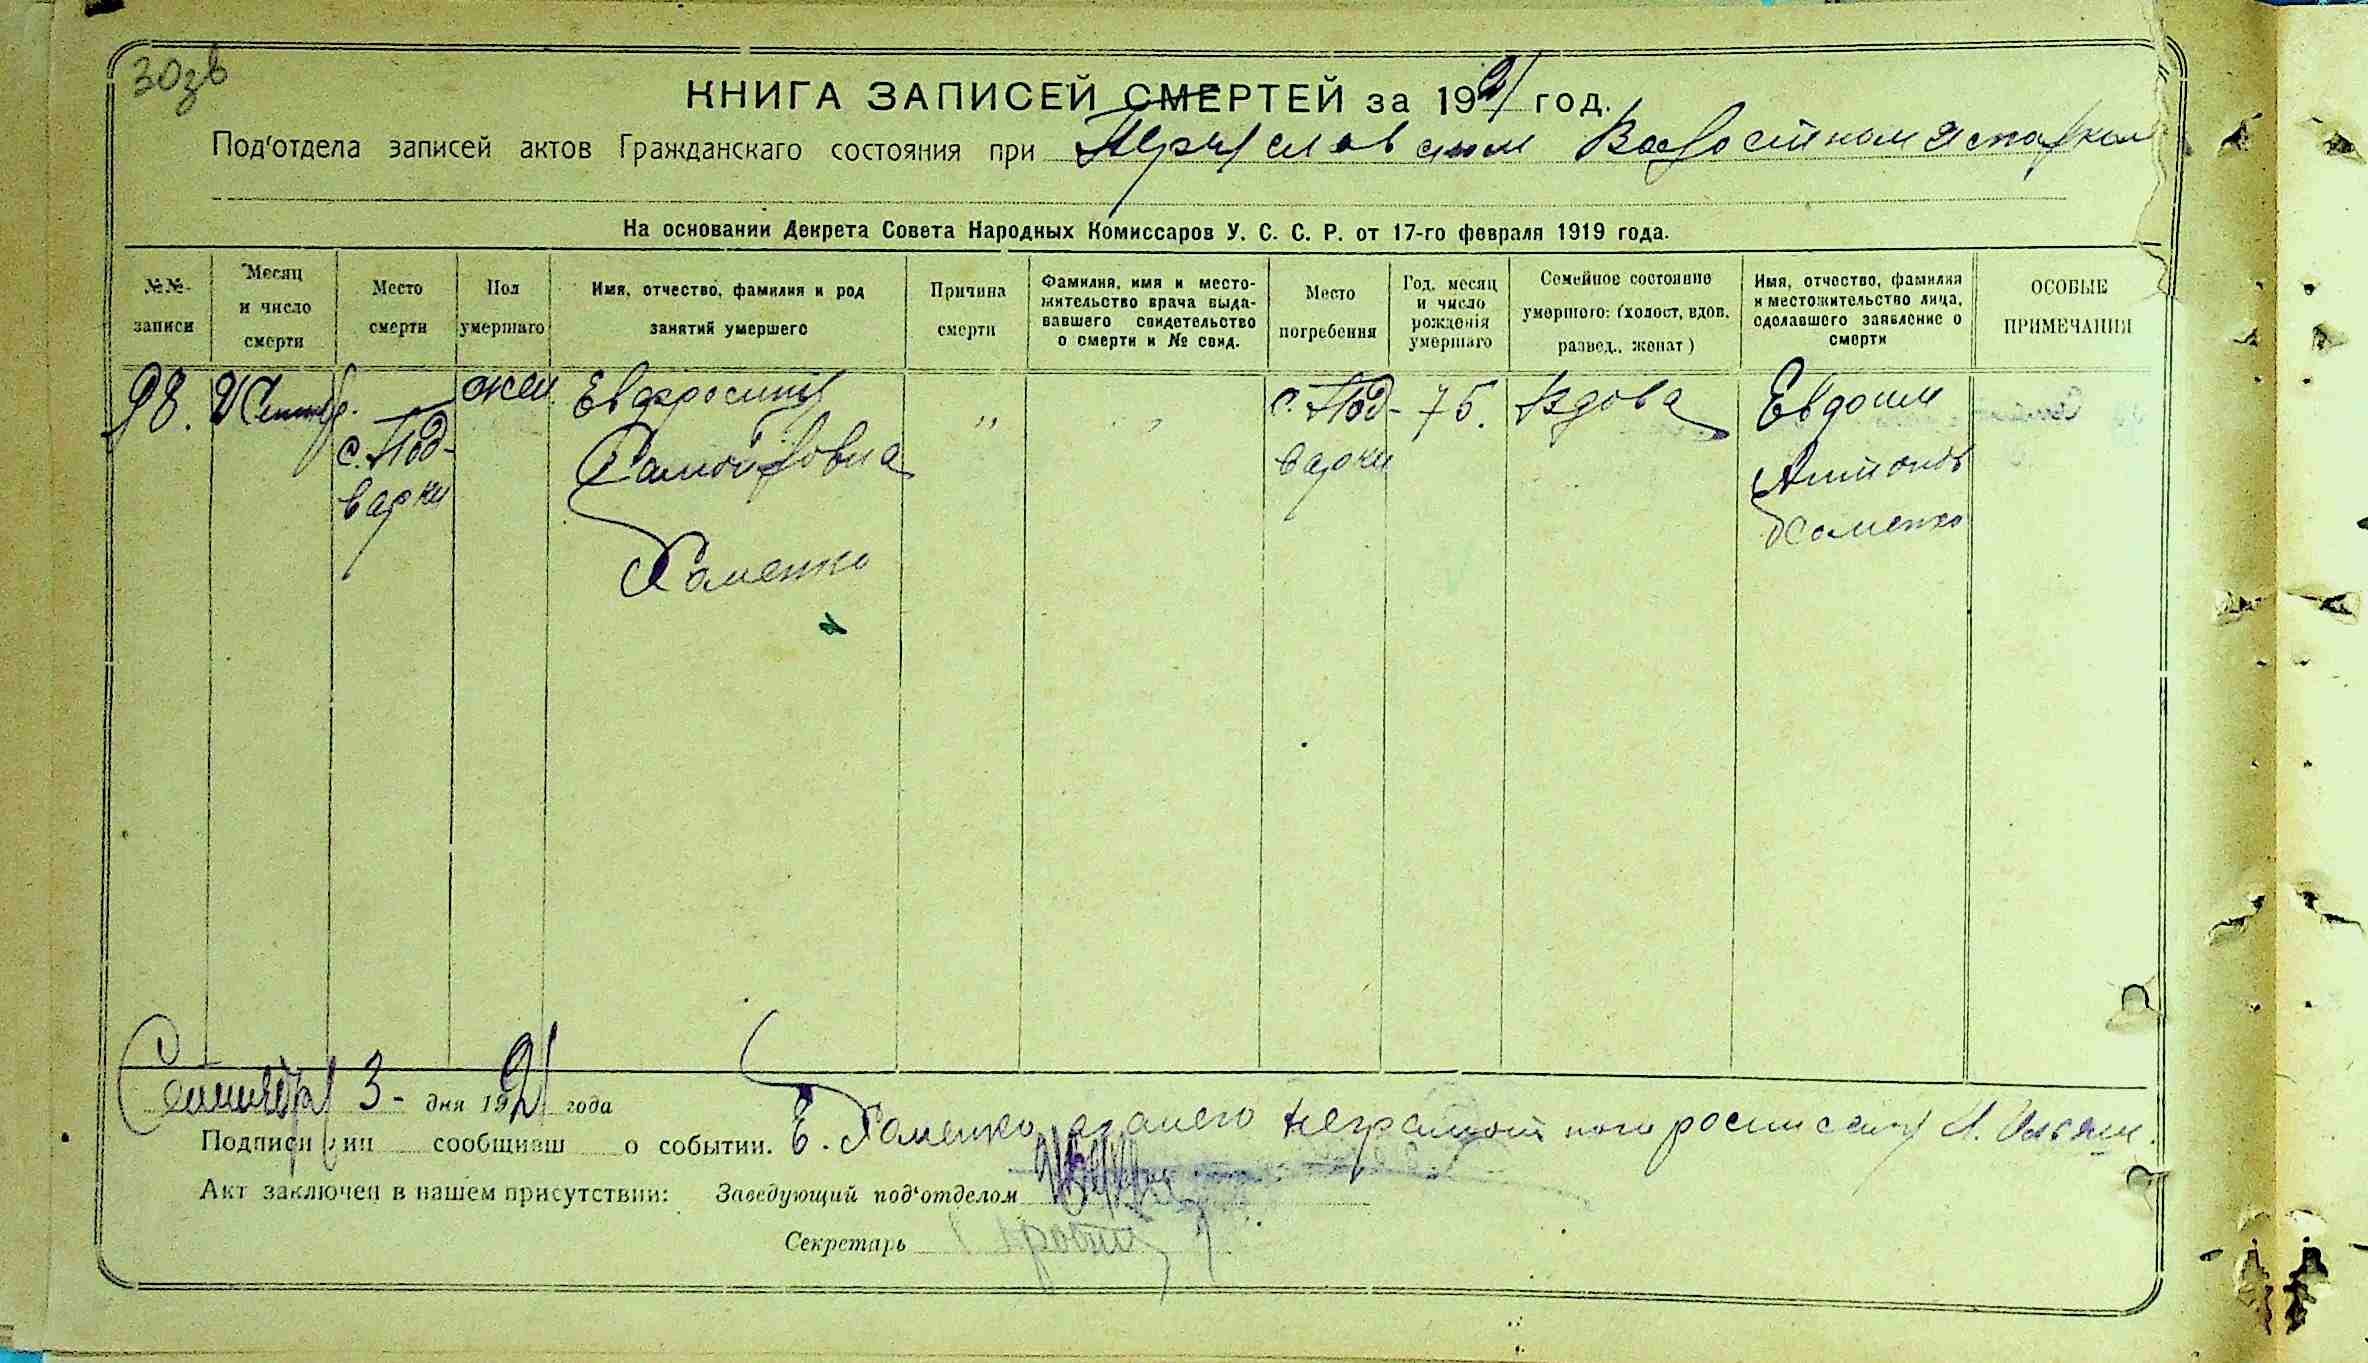 30зв
КНИГА ЗАПИСЕЙ СМЕРТЕЙ за 1921 год.
Под'отдела записей актов Гражданскаго состояния при Переяславском Волостном Исполкоме
На основании Декрета Совета Народных Комиссаров У. С. С. Р. от 17-го февраля 1919 года.
№№ записи
Месяц и число смерти
Место смерти
Пол умершаго
Имя, отчество, фамилия и род занятий умершего
Причина смерти
Фамилия, имя и место-жительство врача выда-вавшего свидетельство о смерти и № свид.
Место погребения
Год, месяц и число рождения умершаго
Семейное состояние умершого: (холост, вдов. развед., женат)
Имя, отчество, фамилия и местожительство лица, сделавшего заявление о смерти
ОСОБЫЕ ПРИМЕЧАНИЯ
98. 2 Сентяб. жен Евфросиния " " с. Под- 75. Вдова Евдоким
с. Под- Самойловна варки Антонов
варки Хоменко
Хоменко
Сентября 3 - дня 1921 года
Подписи лиц сообщивш о событии. Е. Хоменко, а за него неграмотного росписался
Акт заключен в нашем присутствии: Заведующий под'отделом
Секретарь